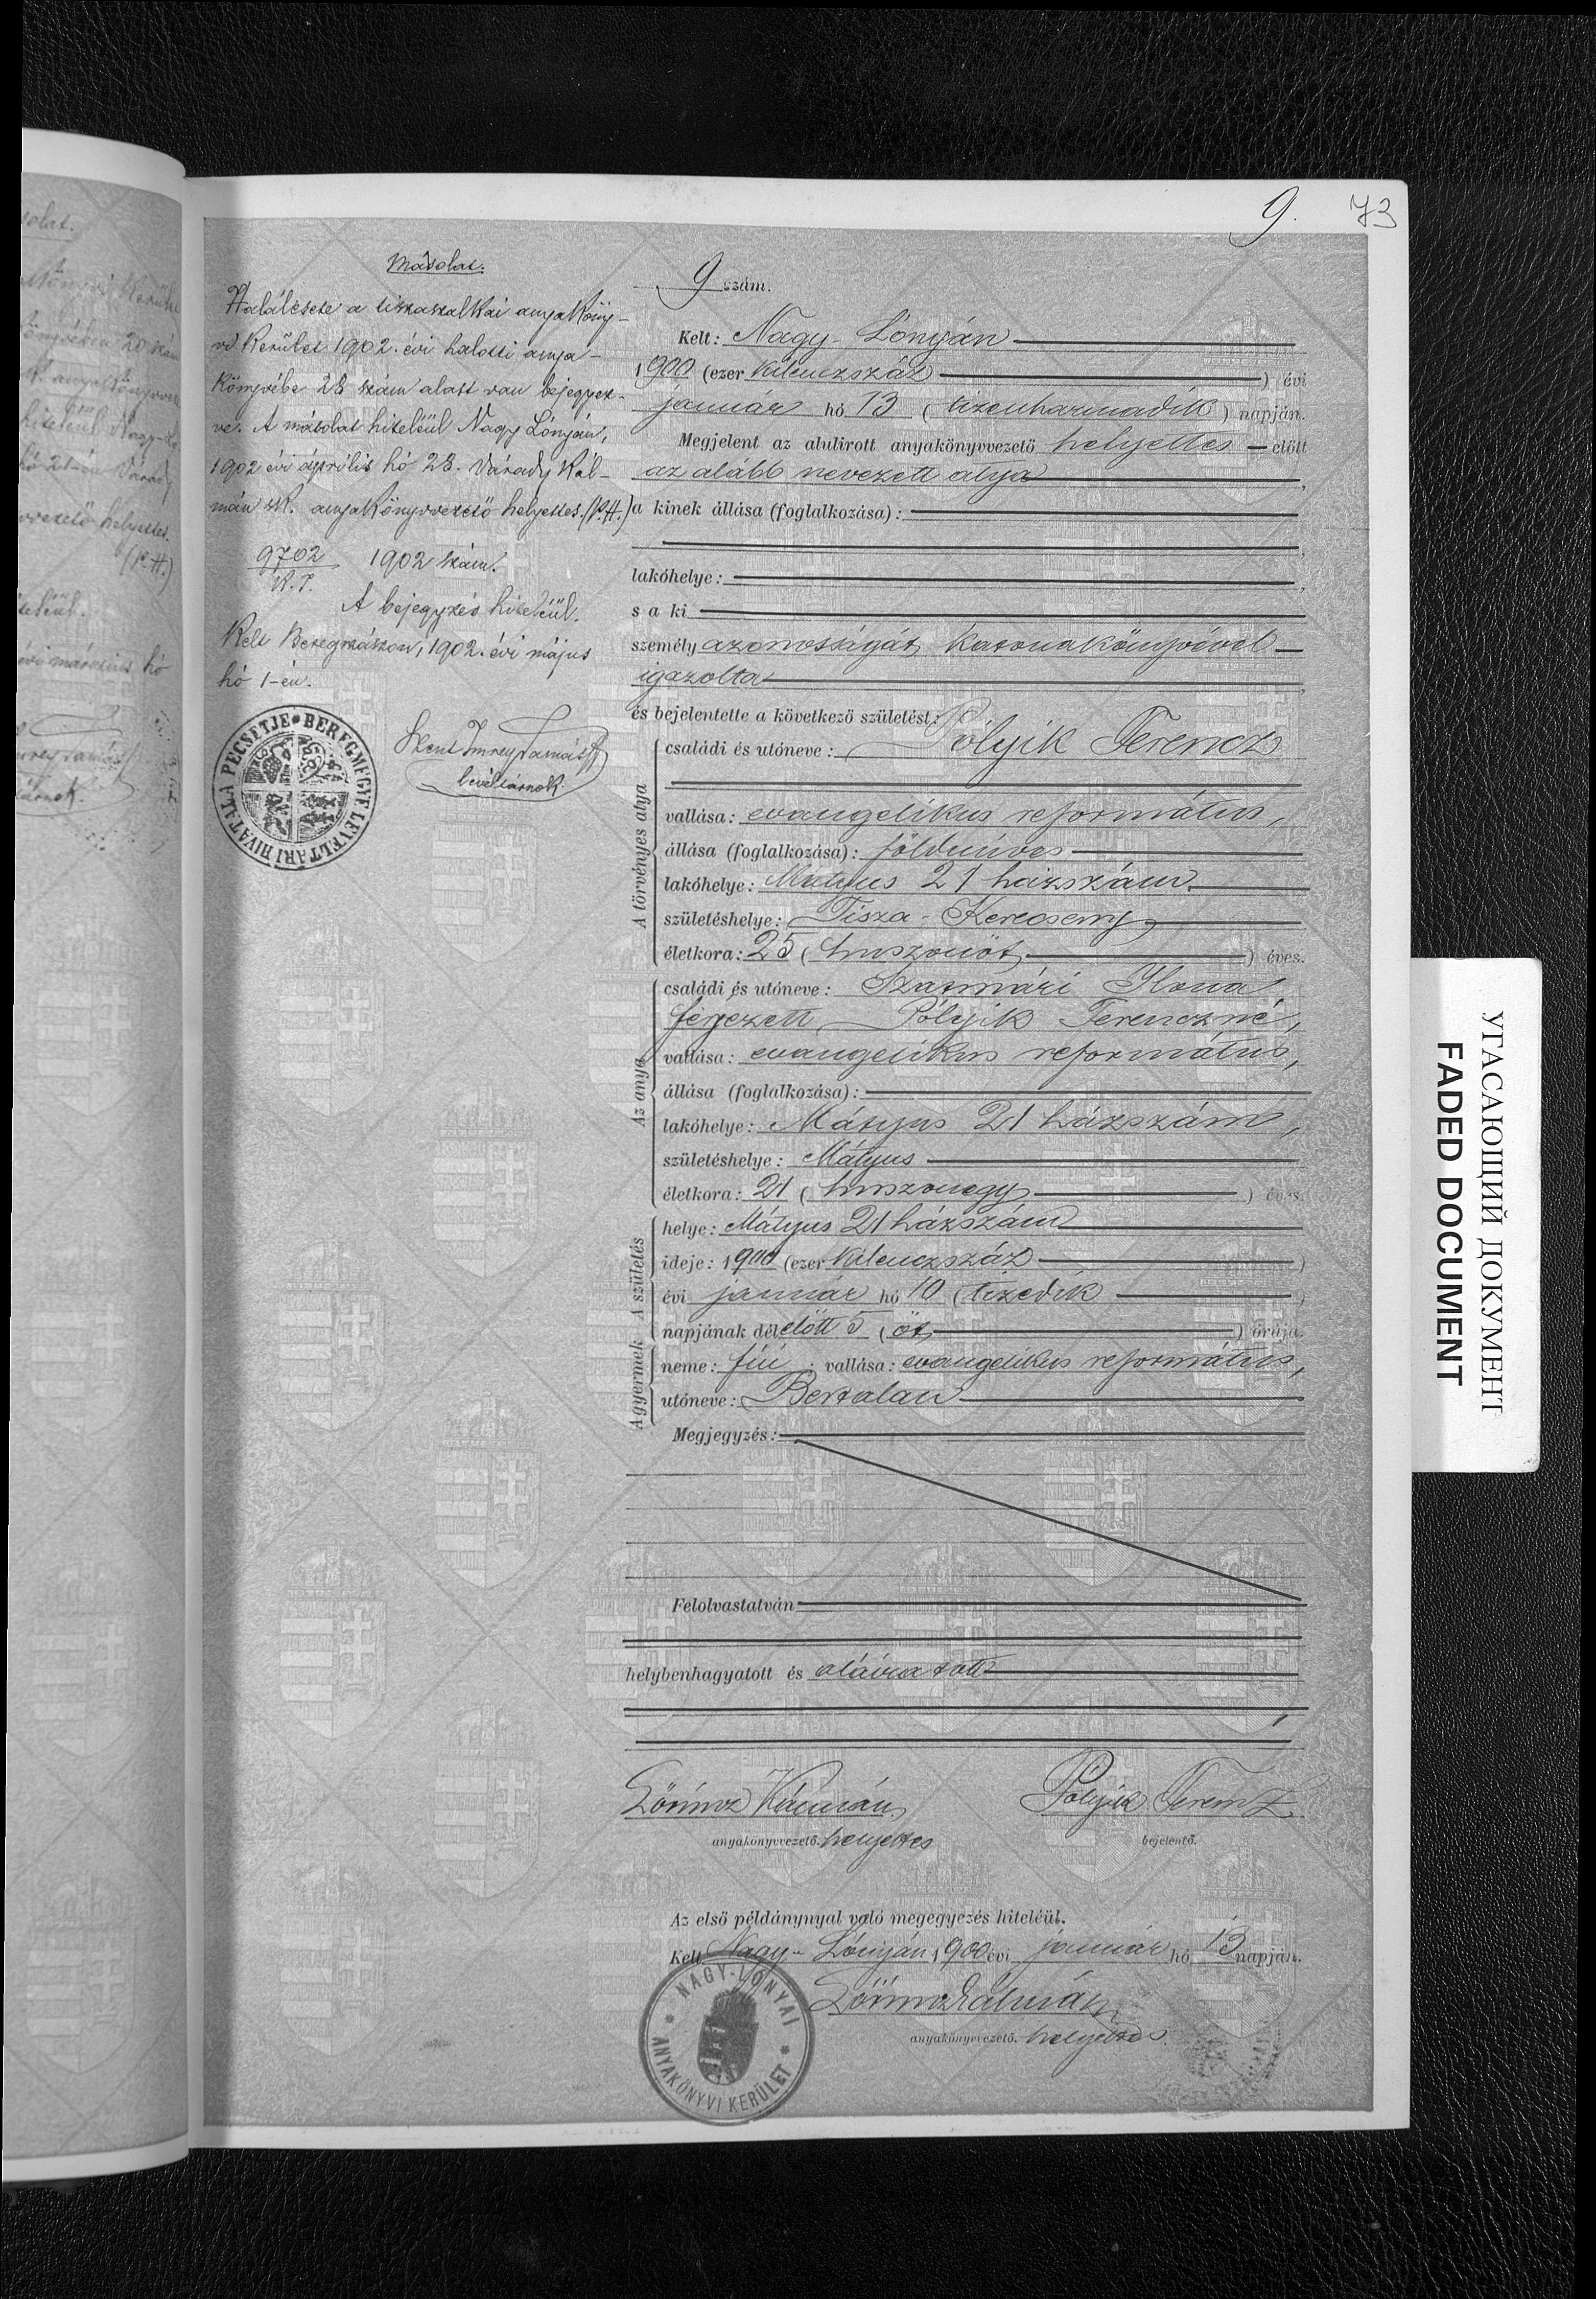 9. 73
Másolat.
Halálesete a tiszaszalkai anyaköny-
vi kerület 1902. évi halotti anya-
könyvébe 28 szám alatt van bejegyez-
ve. A másolat hiteléül Nagy Lónyán,
1902 évi április hó 28. Várady Kál-
mán sk. anyakönyvvezető helyettes. (P.H.)
9702
K.I.
1902 szám.
A bejegyzés hiteléül.
Kelt Beregszászon, 1902. évi május
hó 1-én.
Szent Imrey Tamás
levéltárnok.
BEREGMEGYE LEVÉLTÁRI HIVATALA PECSÉTJE
9 szám.
Kelt: Nagy-Lónyán
1900 (ezer kilenczszáz) évi
január hó 13 (tizenharmadik) napján.
Megjelent az alulirott anyakönyvvezető helyettes előtt
az alább nevezett atya,
a kinek állása (foglalkozása):
lakóhelye:
s a ki
személyazonosságát katonakönyvével
igazolta,
és bejelentette a következő születést:
A törvényes atya
családi és utóneve: Pólyik Ferencz
vallása: evangelikus református,
állása (foglalkozása): földmives
lakóhelye: Mátyus 21 házszám
születéshelye: Tisza-Kerecseny
életkora: 25 (huszonöt) éves.
Az anya
családi és utóneve: Szatmári Ilona
férjezett Pólyik Ferenczné,
vallása: evangelikus református,
állása (foglalkozása):
lakóhelye: Mátyus 21 házszám,
születéshelye: Mátyus
életkora: 21 (huszonegy) éves.
A születés
helye: Mátyus 21 házszám
ideje: 1900 (ezer kilenczszáz)
évi január hó 10 (tizedik)
napjának délelőtt 5 (öt) órája.
A gyermek
neme: fiú; vallása: evangelikus református,
utóneve: Bertalan
Megjegyzés:
Felolvastatván
helybenhagyatott és aláiratott
Lőrincz Kálmán
Pólyik Ferencz
anyakönyvvezető. helyettes
bejelentő.
Az első példánynyal való megegyezés hiteléül.
Kelt Nagy-Lónyán 1900 évi január hó 13 napján.
Lőrincz Kálmán
anyakönyvvezető. helyettes.
NAGY-LÓNYAI ANYAKÖNYVI KERÜLET
УГАСАЮЩИЙ ДОКУМЕНТ
FADED DOCUMENT